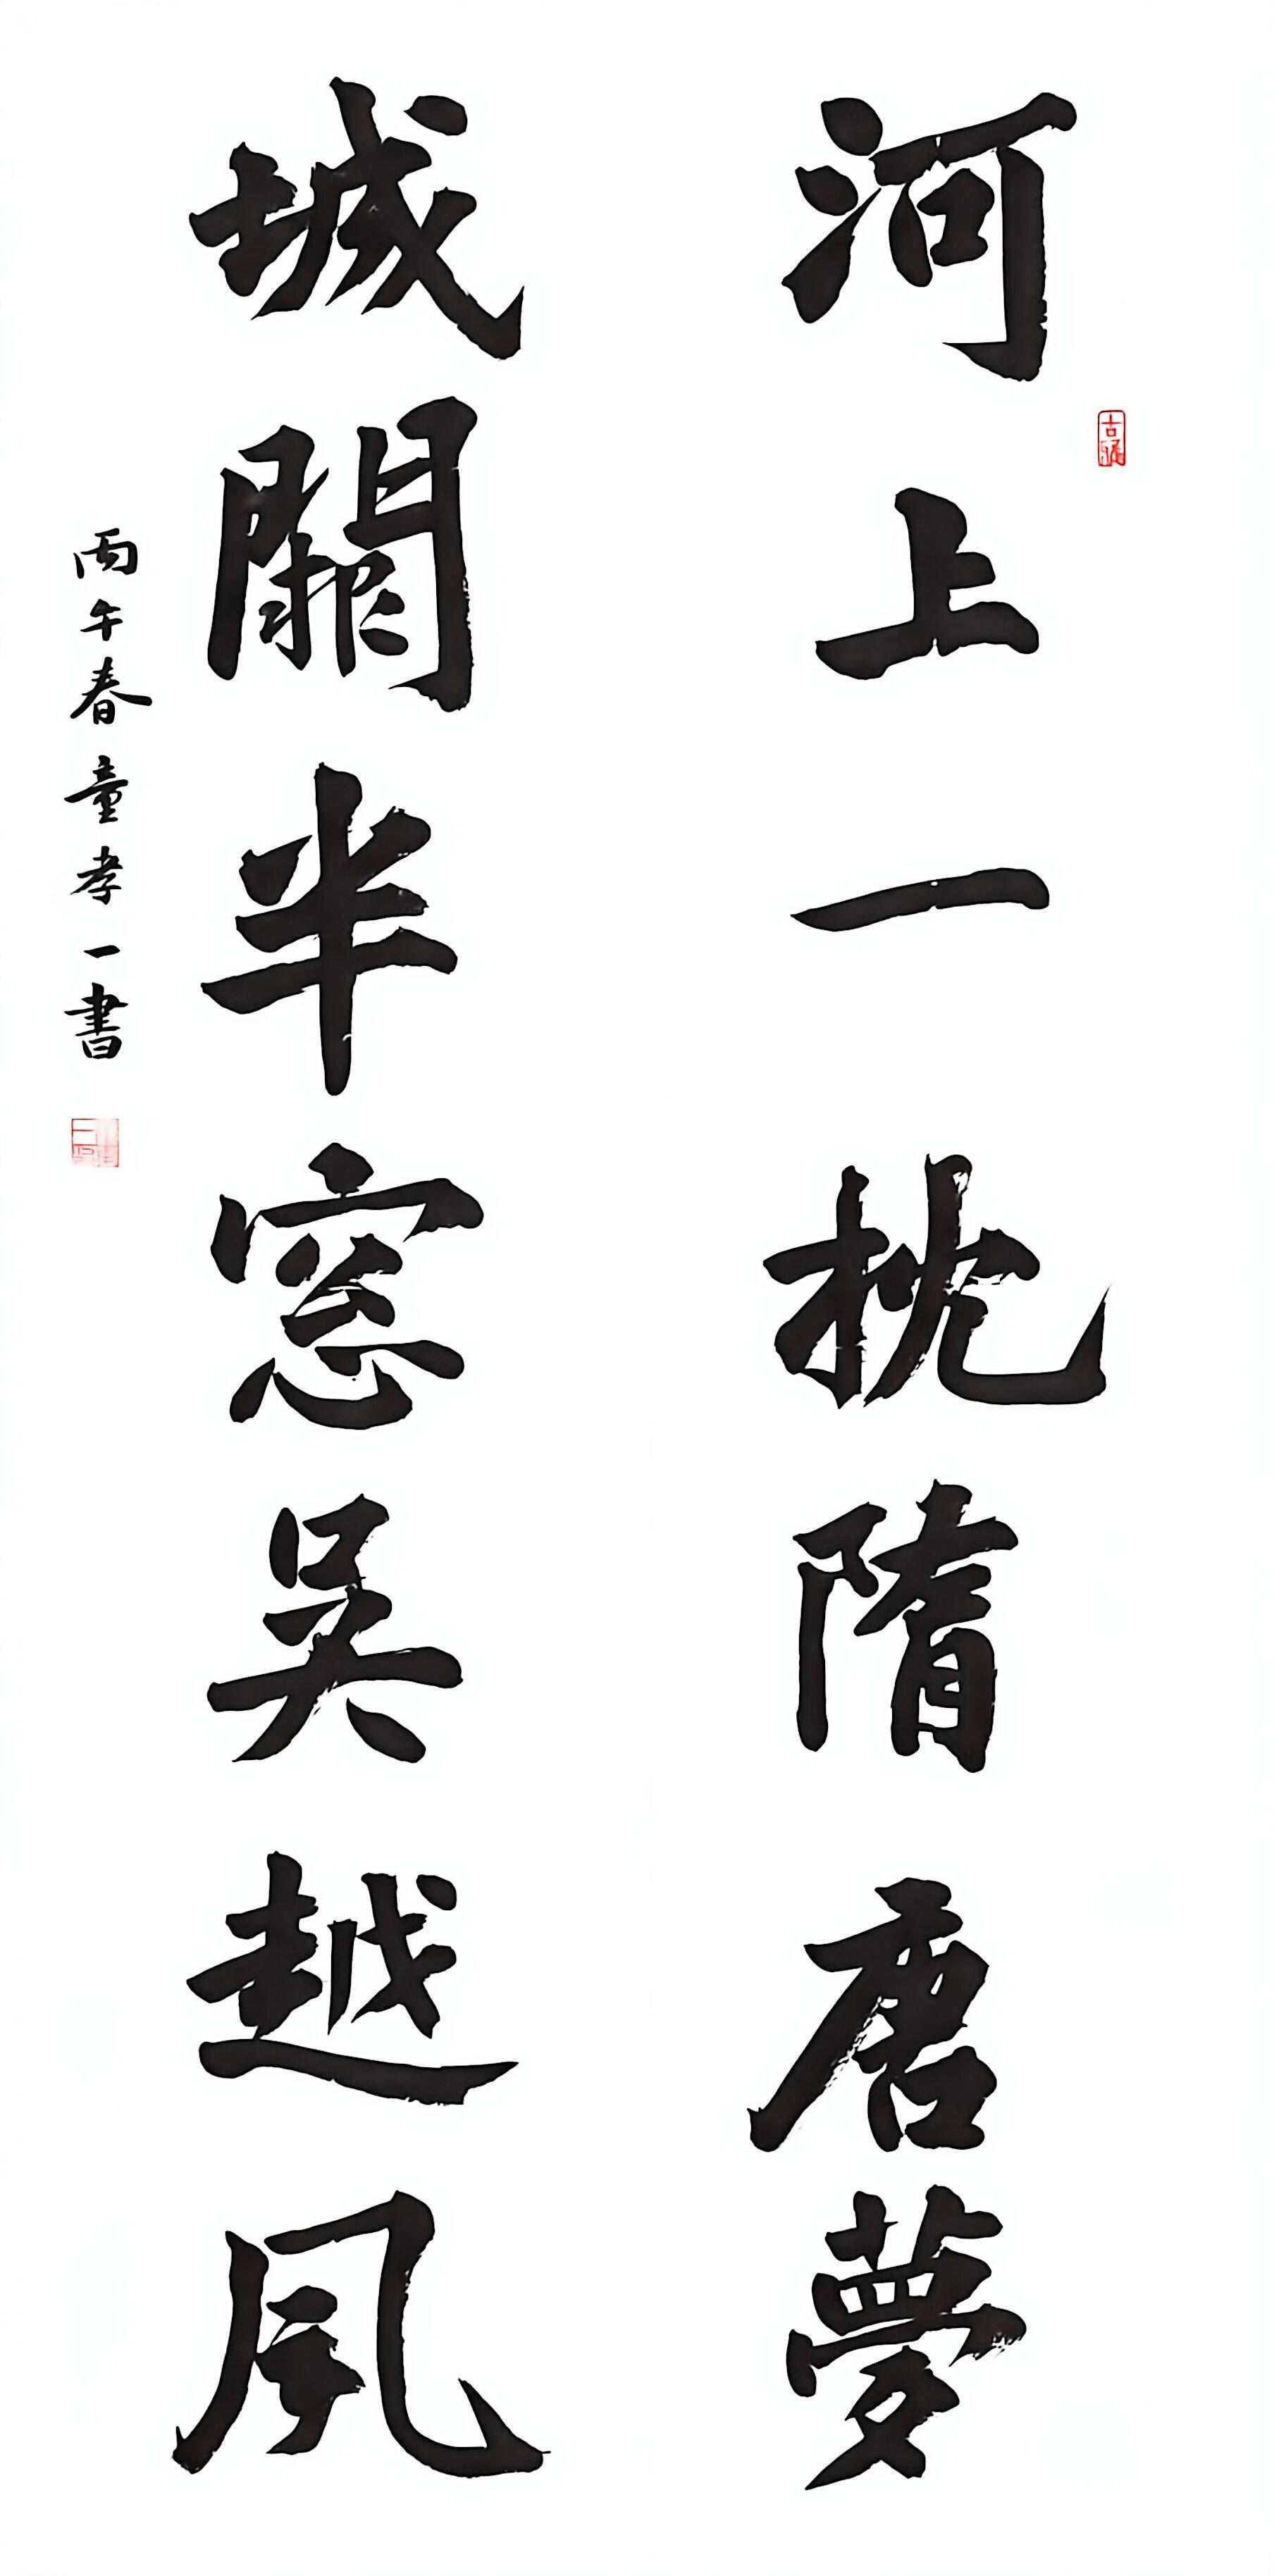 河上一枕隋唐夢
城闕半窓吳越風
丙午春童孝一書